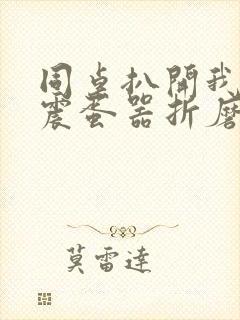 同桌扒開我
震蛋器折磨
莫雷達